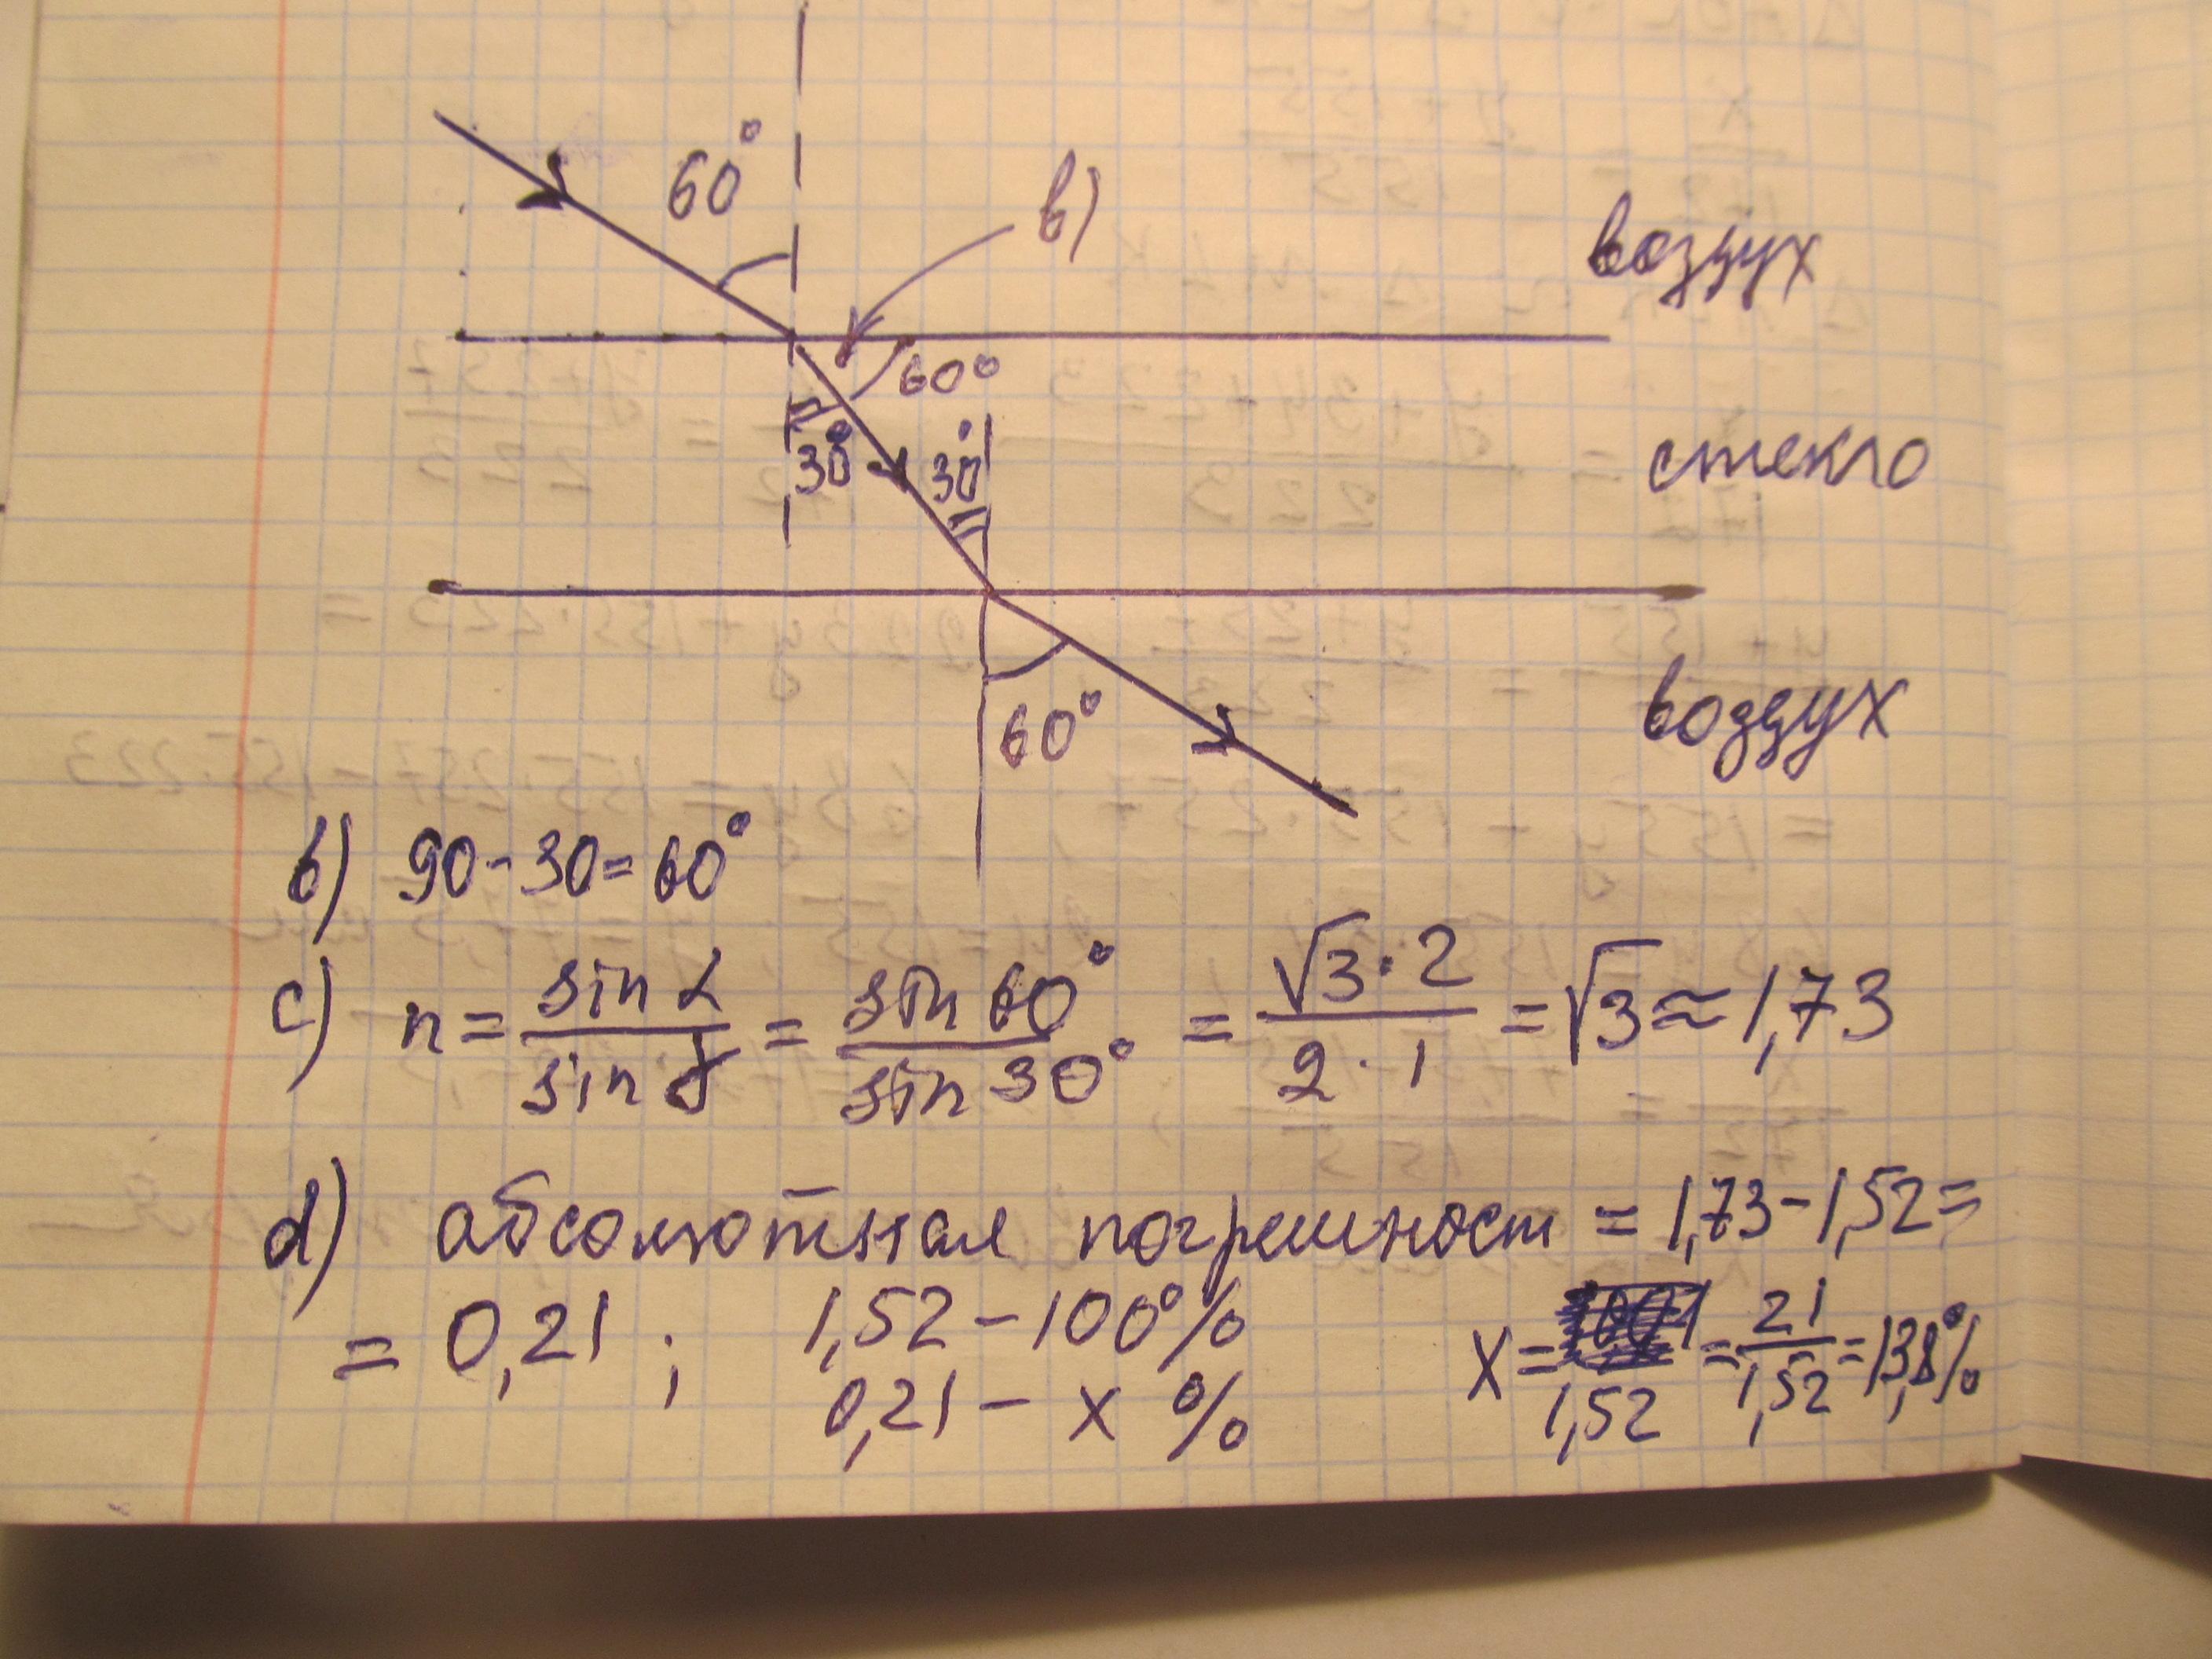 60°
b)
воздух
60°
30°
30°
стекло
60°
воздух
b) 90-30=60°
c) n = sin α / sin γ = sin 60° / sin 30° = √3·2 / 2·1 = √3 ≈ 1,73
d) абсолютная погрешност = 1,73-1,52=
= 0,21 ; 1,52 - 100%
0,21 - x %
x = / 1,52 = 21 / 1,52 = 13,8%